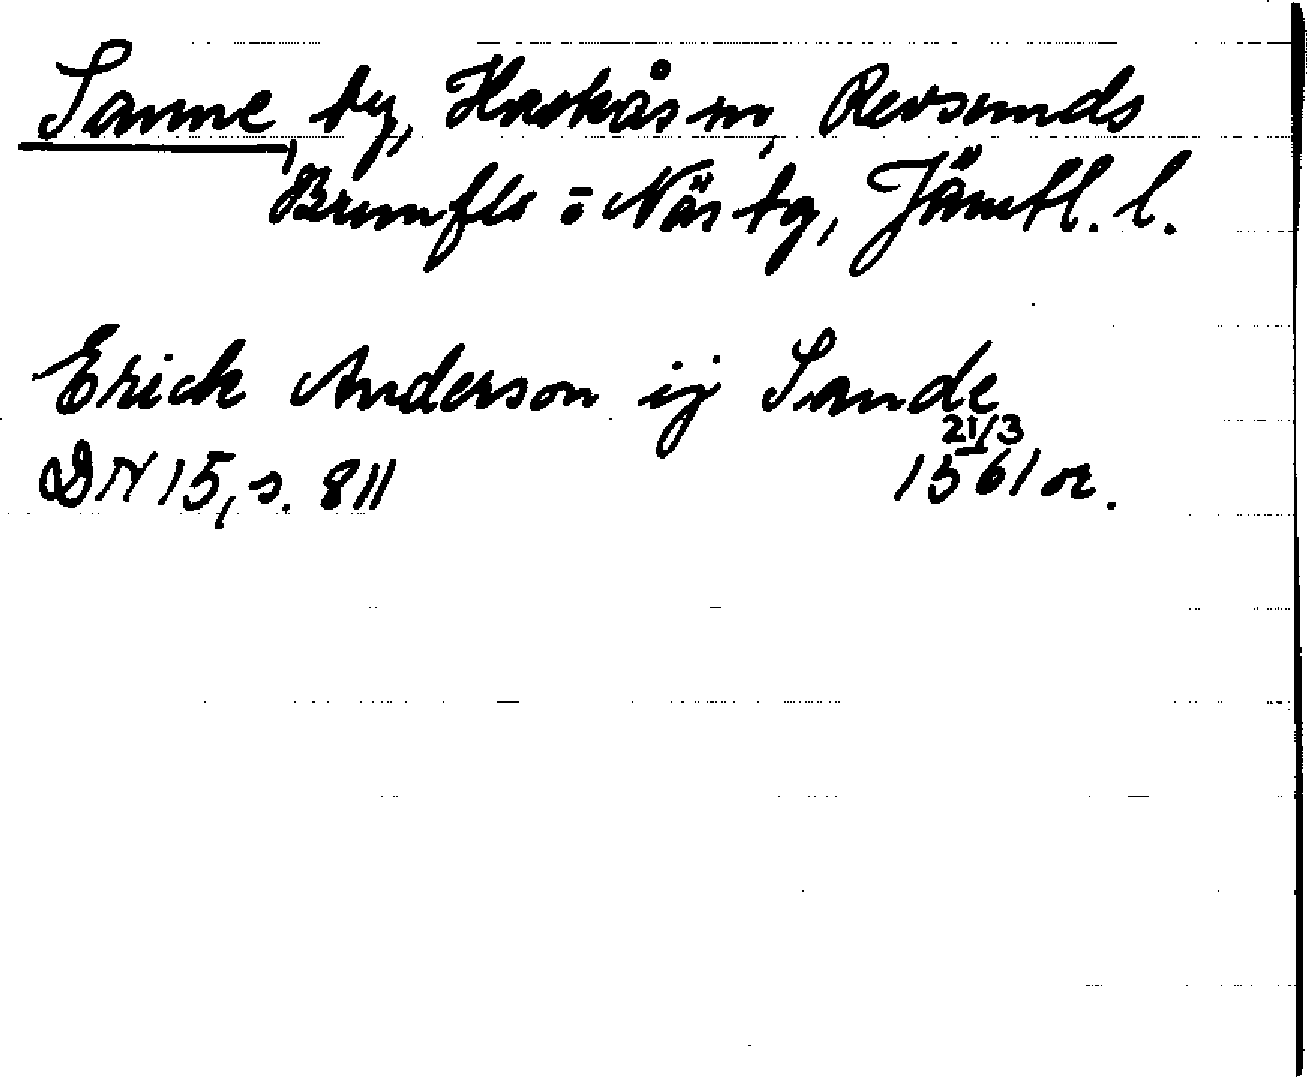 Sanne by, Hackås sn, Revsunds
Brunflo o. Näs tg, Jämtl. l.
Erick Anderson ij Sande
21/3
DN 15, s. 811 1561 or.